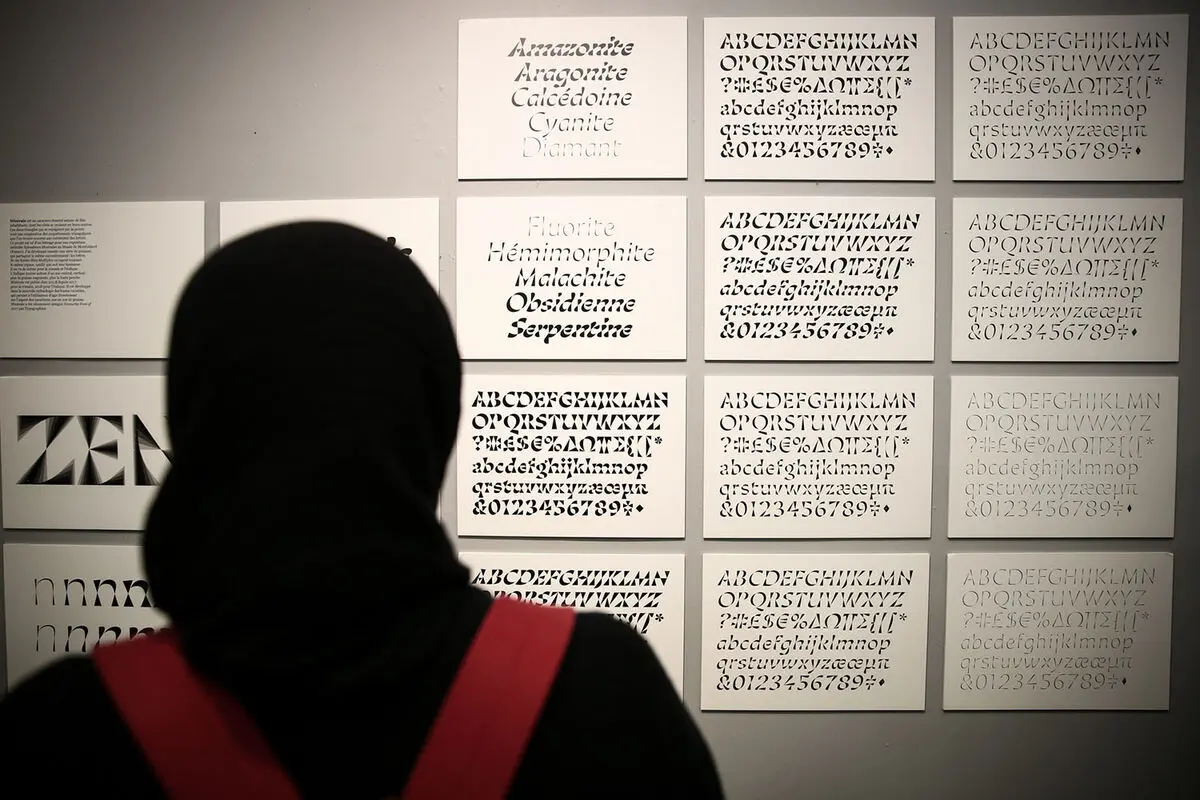 Amazonite
Aragonite
Calcédoine
Cyanite
Diamant
ABCDEFGHIJKLMN
OPQRSTUVWXYZ
?#£$€%ΔΩΠΣ{[(*
abcdefghijklmnop
qrstuvwxyzæœµπ
&0123456789÷♦
ABCDEFGHIJKLMN
OPQRSTUVWXYZ
?#£$€%ΔΩΠΣ{[(*
abcdefghijklmnop
qrstuvwxyzæœµπ
&0123456789÷♦
Fluorite
Hémimorphite
Malachite
Obsidienne
Serpentine
ABCDEFGHIJKLMN
OPQRSTUVWXYZ
?#£$€%ΔΩΠΣ{[(*
abcdefghijklmnop
qrstuvwxyzæœµπ
&0123456789÷♦
ABCDEFGHIJKLMN
OPQRSTUVWXYZ
?#£$€%ΔΩΠΣ{[(*
abcdefghijklmnop
qrstuvwxyzæœµπ
&0123456789÷♦
ZEN
ABCDEFGHIJKLMN
OPQRSTUVWXYZ
?#£$€%ΔΩΠΣ{[(*
abcdefghijklmnop
qrstuvwxyzæœµπ
&0123456789÷♦
ABCDEFGHIJKLMN
OPQRSTUVWXYZ
?#£$€%ΔΩΠΣ{[(*
abcdefghijklmnop
qrstuvwxyzæœµπ
&0123456789÷♦
ABCDEFGHIJKLMN
OPQRSTUVWXYZ
?#£$€%ΔΩΠΣ{[(*
abcdefghijklmnop
qrstuvwxyzæœµπ
&0123456789÷♦
nnnnn
nnnnn
ABCDEFGHIJKLMN
ABCDEFGHIJKLMN
OPQRSTUVWXYZ
?#£$€%ΔΩΠΣ{[(*
abcdefghijklmnop
qrstuvwxyzæœµπ
&0123456789÷♦
ABCDEFGHIJKLMN
OPQRSTUVWXYZ
?#£$€%ΔΩΠΣ{[(*
abcdefghijklmnop
qrstuvwxyzæœµπ
&0123456789÷♦